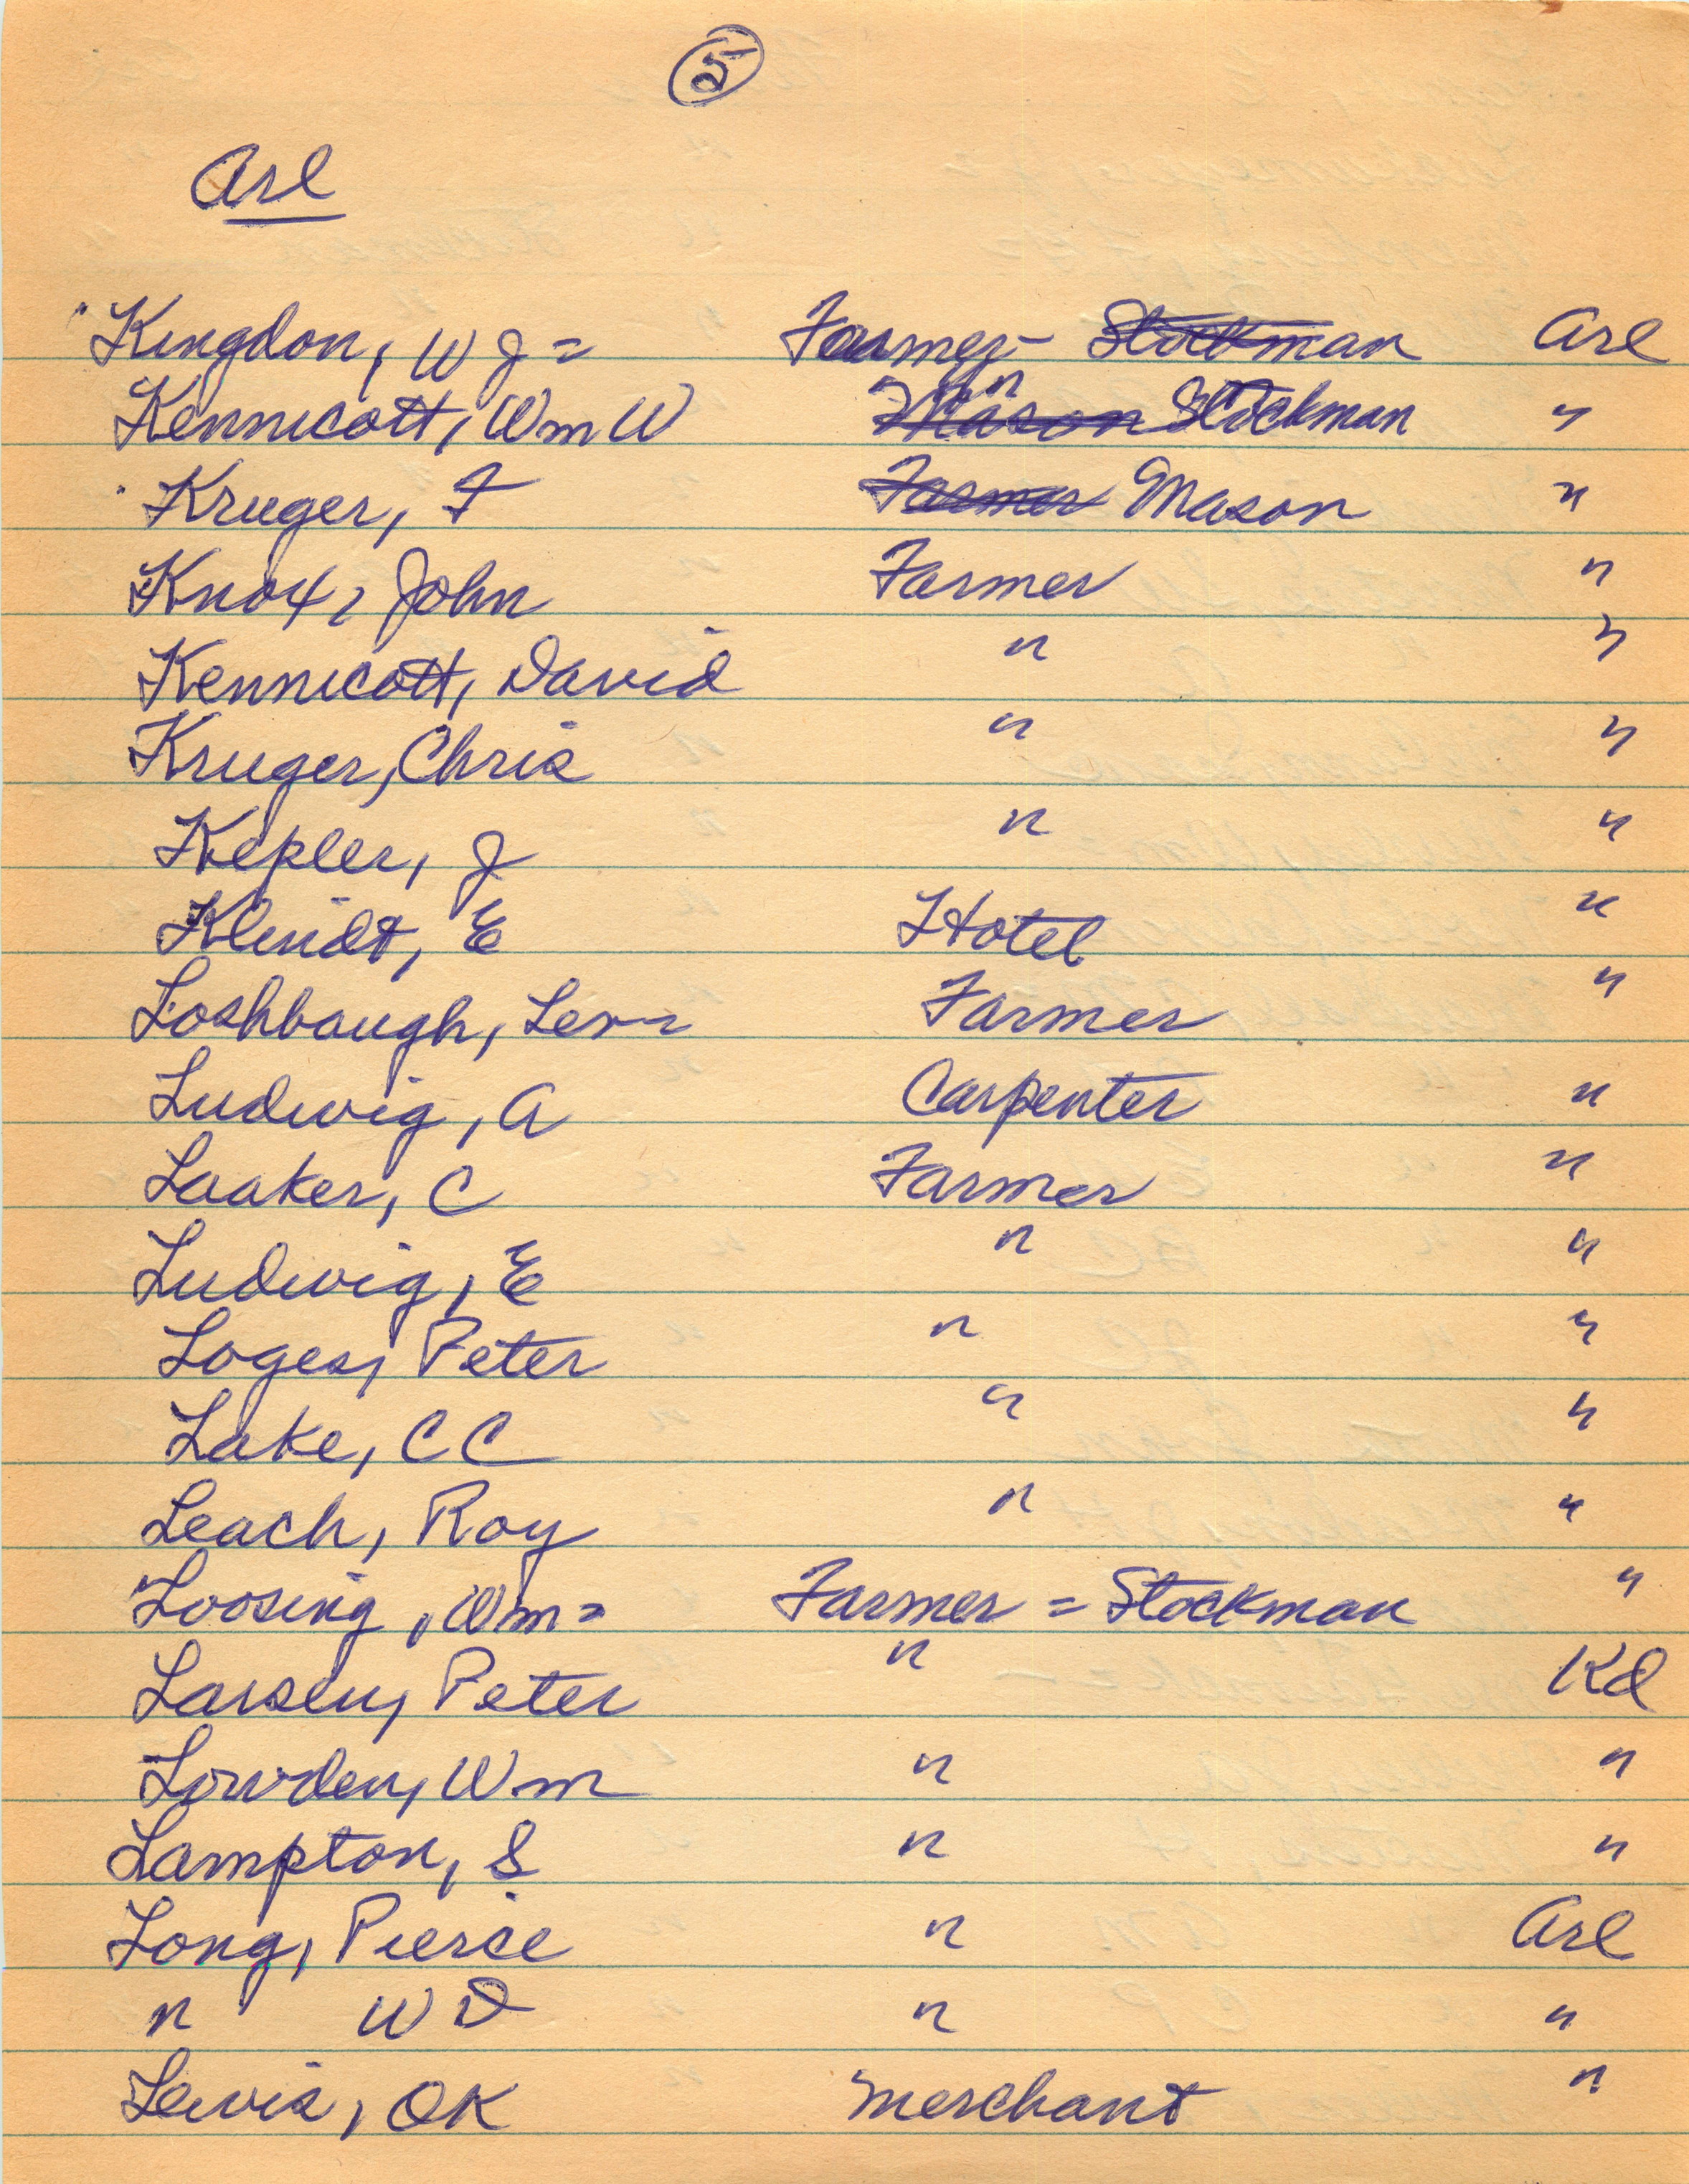 5
Arl
Kingdon, W J = Farmer - Stockman Arl
Kennicott, Wm W " " Mason Stockman "
Kruger, F Farmer Mason "
Knox, John Farmer "
Kennicott, David " "
Kruger, Chris " "
Kepler, J " "
Klindt, E Hotel "
Loshbaugh, Levi Farmer "
Ludwig, A Carpenter "
Laaker, C Farmer "
Ludwig, E " "
Loges, Peter " "
Lake, CC " "
Leach, Roy " "
Loosing, Wm = Farmer = Stockman "
Larsen, Peter " Kd
Lowden, Wm " "
Lampton, S " "
Long, Pierce " Arl
" W D " "
Lewis, OK Merchant "